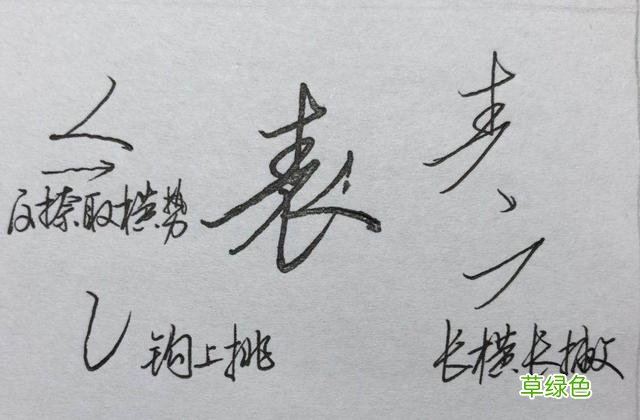 表
反捺取横势
钩上挑
长横长撇
草绿色